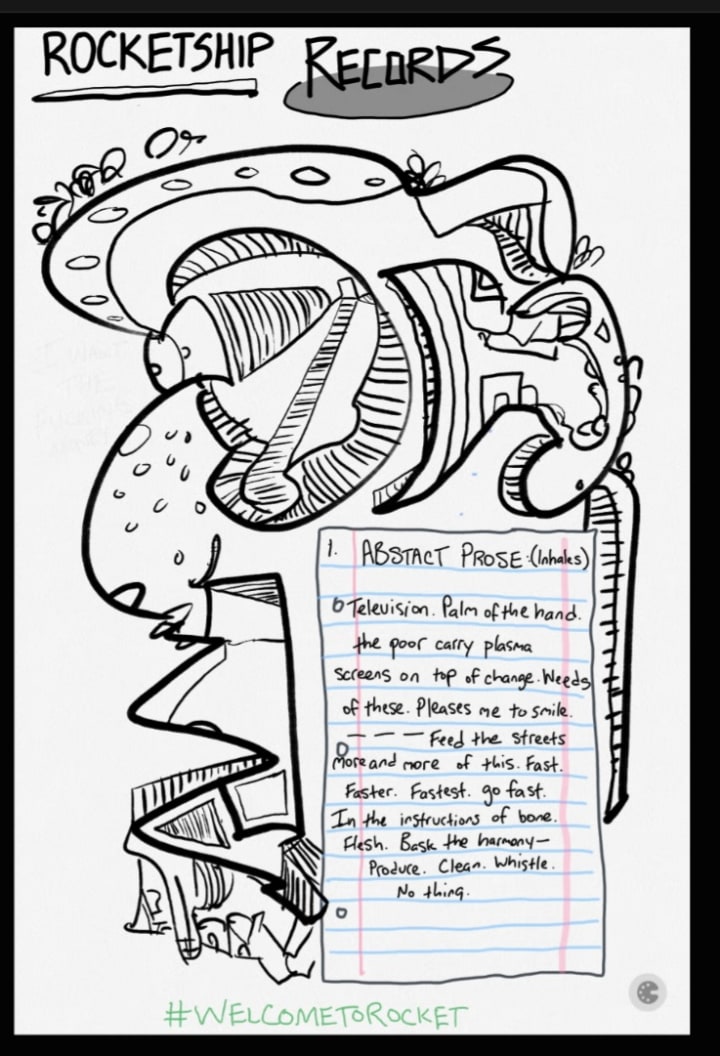 ROCKETSHIP RECORDS
Or
I WANT
THE
1. ABSTACT PROSE:(Inhales)
Television. Palm of the hand.
the poor carry plasma
screens on top of change. Needs
of these. Pleases me to smile.
– – – – Feed the streets
More and more of this. Fast.
Faster. Fastest. go fast.
In the instructions of bone.
Flesh. Bask the harmony—
Produce. Clean. Whistle.
No thing.
#WELCOMETOROCKET